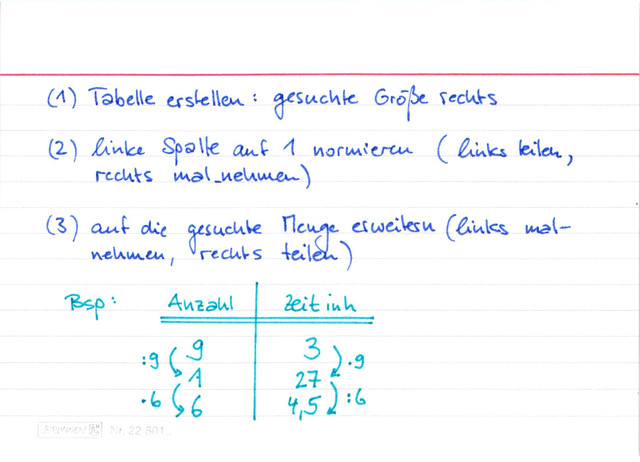 (1) Tabelle erstellen: gesuchte Größe rechts
(2) linke Spalte auf 1 normieren (links teilen,
rechts mal_nehmen)
(3) auf die gesuchte Menge erweitern (links mal-
nehmen, rechts teilen)
Bsp: Anzahl Zeit in h
:9 9 3 ·9
1 27
·6 6 4,5 :6
Nr. 22 801